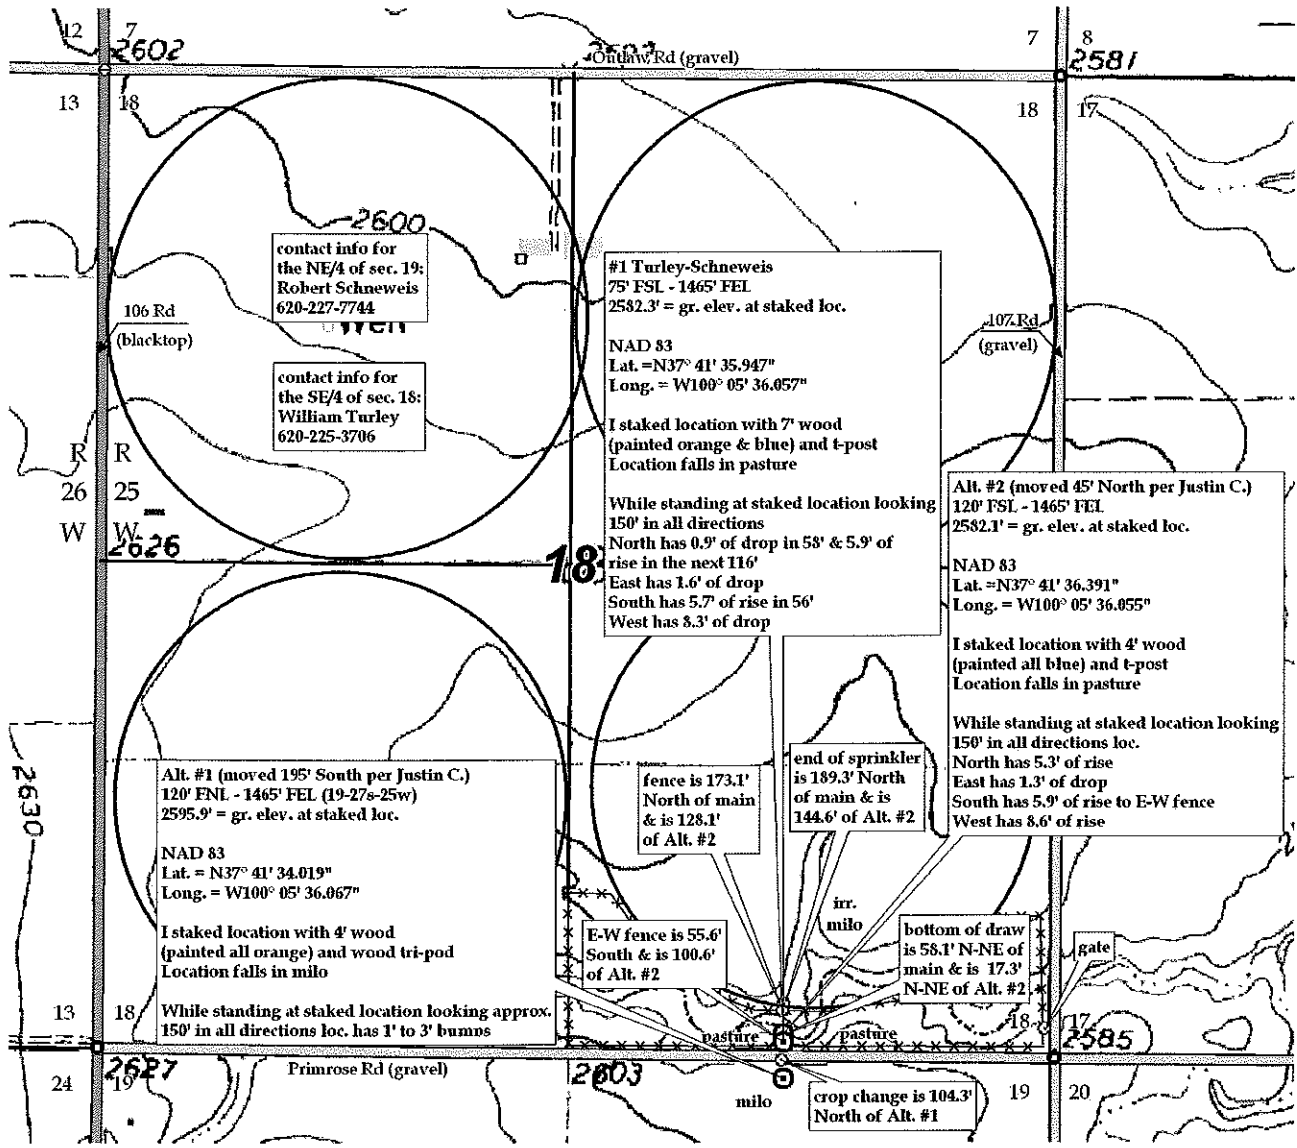 12
7
2602
Outlaw Rd (gravel)
7
8
2581
13
18
18
17
2600
contact info for
the NE/4 of sec. 19:
Robert Schneweis
620-227-7744
Well
106 Rd
(blacktop)
contact info for
the SE/4 of sec. 18:
William Turley
620-225-3706
R
R
26
25
W
W
2626
18
#1 Turley-Schneweis
75' FSL - 1465' FEL
2582.3' = gr. elev. at staked loc.
NAD 83
Lat. =N37° 41' 35.947"
Long. = W100° 05' 36.057"
I staked location with 7' wood
(painted orange & blue) and t-post
Location falls in pasture
While standing at staked location looking
150' in all directions
North has 0.9' of drop in 58' & 5.9' of
rise in the next 116'
East has 1.6' of drop
South has 5.7' of rise in 56'
West has 8.3' of drop
107 Rd
(gravel)
Alt. #2 (moved 45' North per Justin C.)
120' FSL - 1465' FEL
2582.1' = gr. elev. at staked loc.
NAD 83
Lat. =N37° 41' 36.391"
Long. = W100° 05' 36.055"
I staked location with 4' wood
(painted all blue) and t-post
Location falls in pasture
While standing at staked location looking
150' in all directions loc.
North has 5.3' of rise
East has 1.3' of drop
South has 5.9' of rise to E-W fence
West has 8.6' of rise
2630
Alt. #1 (moved 195' South per Justin C.)
120' FNL - 1465' FEL (19-27s-25w)
2595.9' = gr. elev. at staked loc.
NAD 83
Lat. = N37° 41' 34.019"
Long. = W100° 05' 36.067"
I staked location with 4' wood
(painted all orange) and wood tri-pod
Location falls in milo
While standing at staked location looking approx.
150' in all directions loc. has 1' to 3' bumps
fence is 173.1'
North of main
& is 128.1'
of Alt. #2
end of sprinkler
is 189.3' North
of main & is
144.6' of Alt. #2
irr.
milo
E-W fence is 55.6'
South & is 100.6'
of Alt. #2
bottom of draw
is 58.1' N-NE of
main & is 17.3'
N-NE of Alt. #2
gate
13
18
pasture
pasture
18
17
2585
2627
24
19
Primrose Rd (gravel)
2603
milo
crop change is 104.3'
North of Alt. #1
19
20